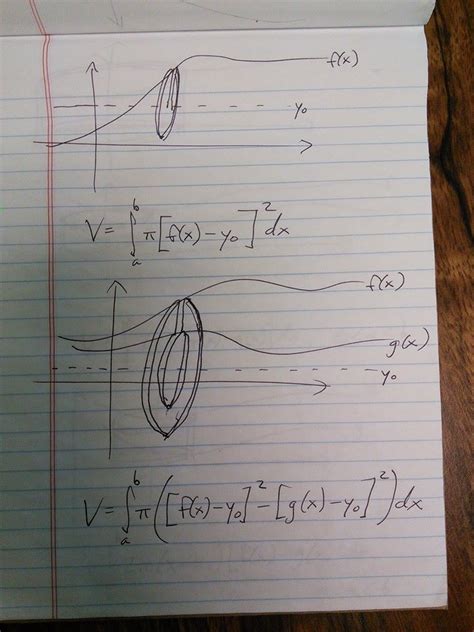 f(x)
y₀
V = ∫ₐᵇ π[f(x) - y₀]² dx
f(x)
g(x)
y₀
V = ∫ₐᵇ π([f(x) - y₀]² - [g(x) - y₀]²) dx